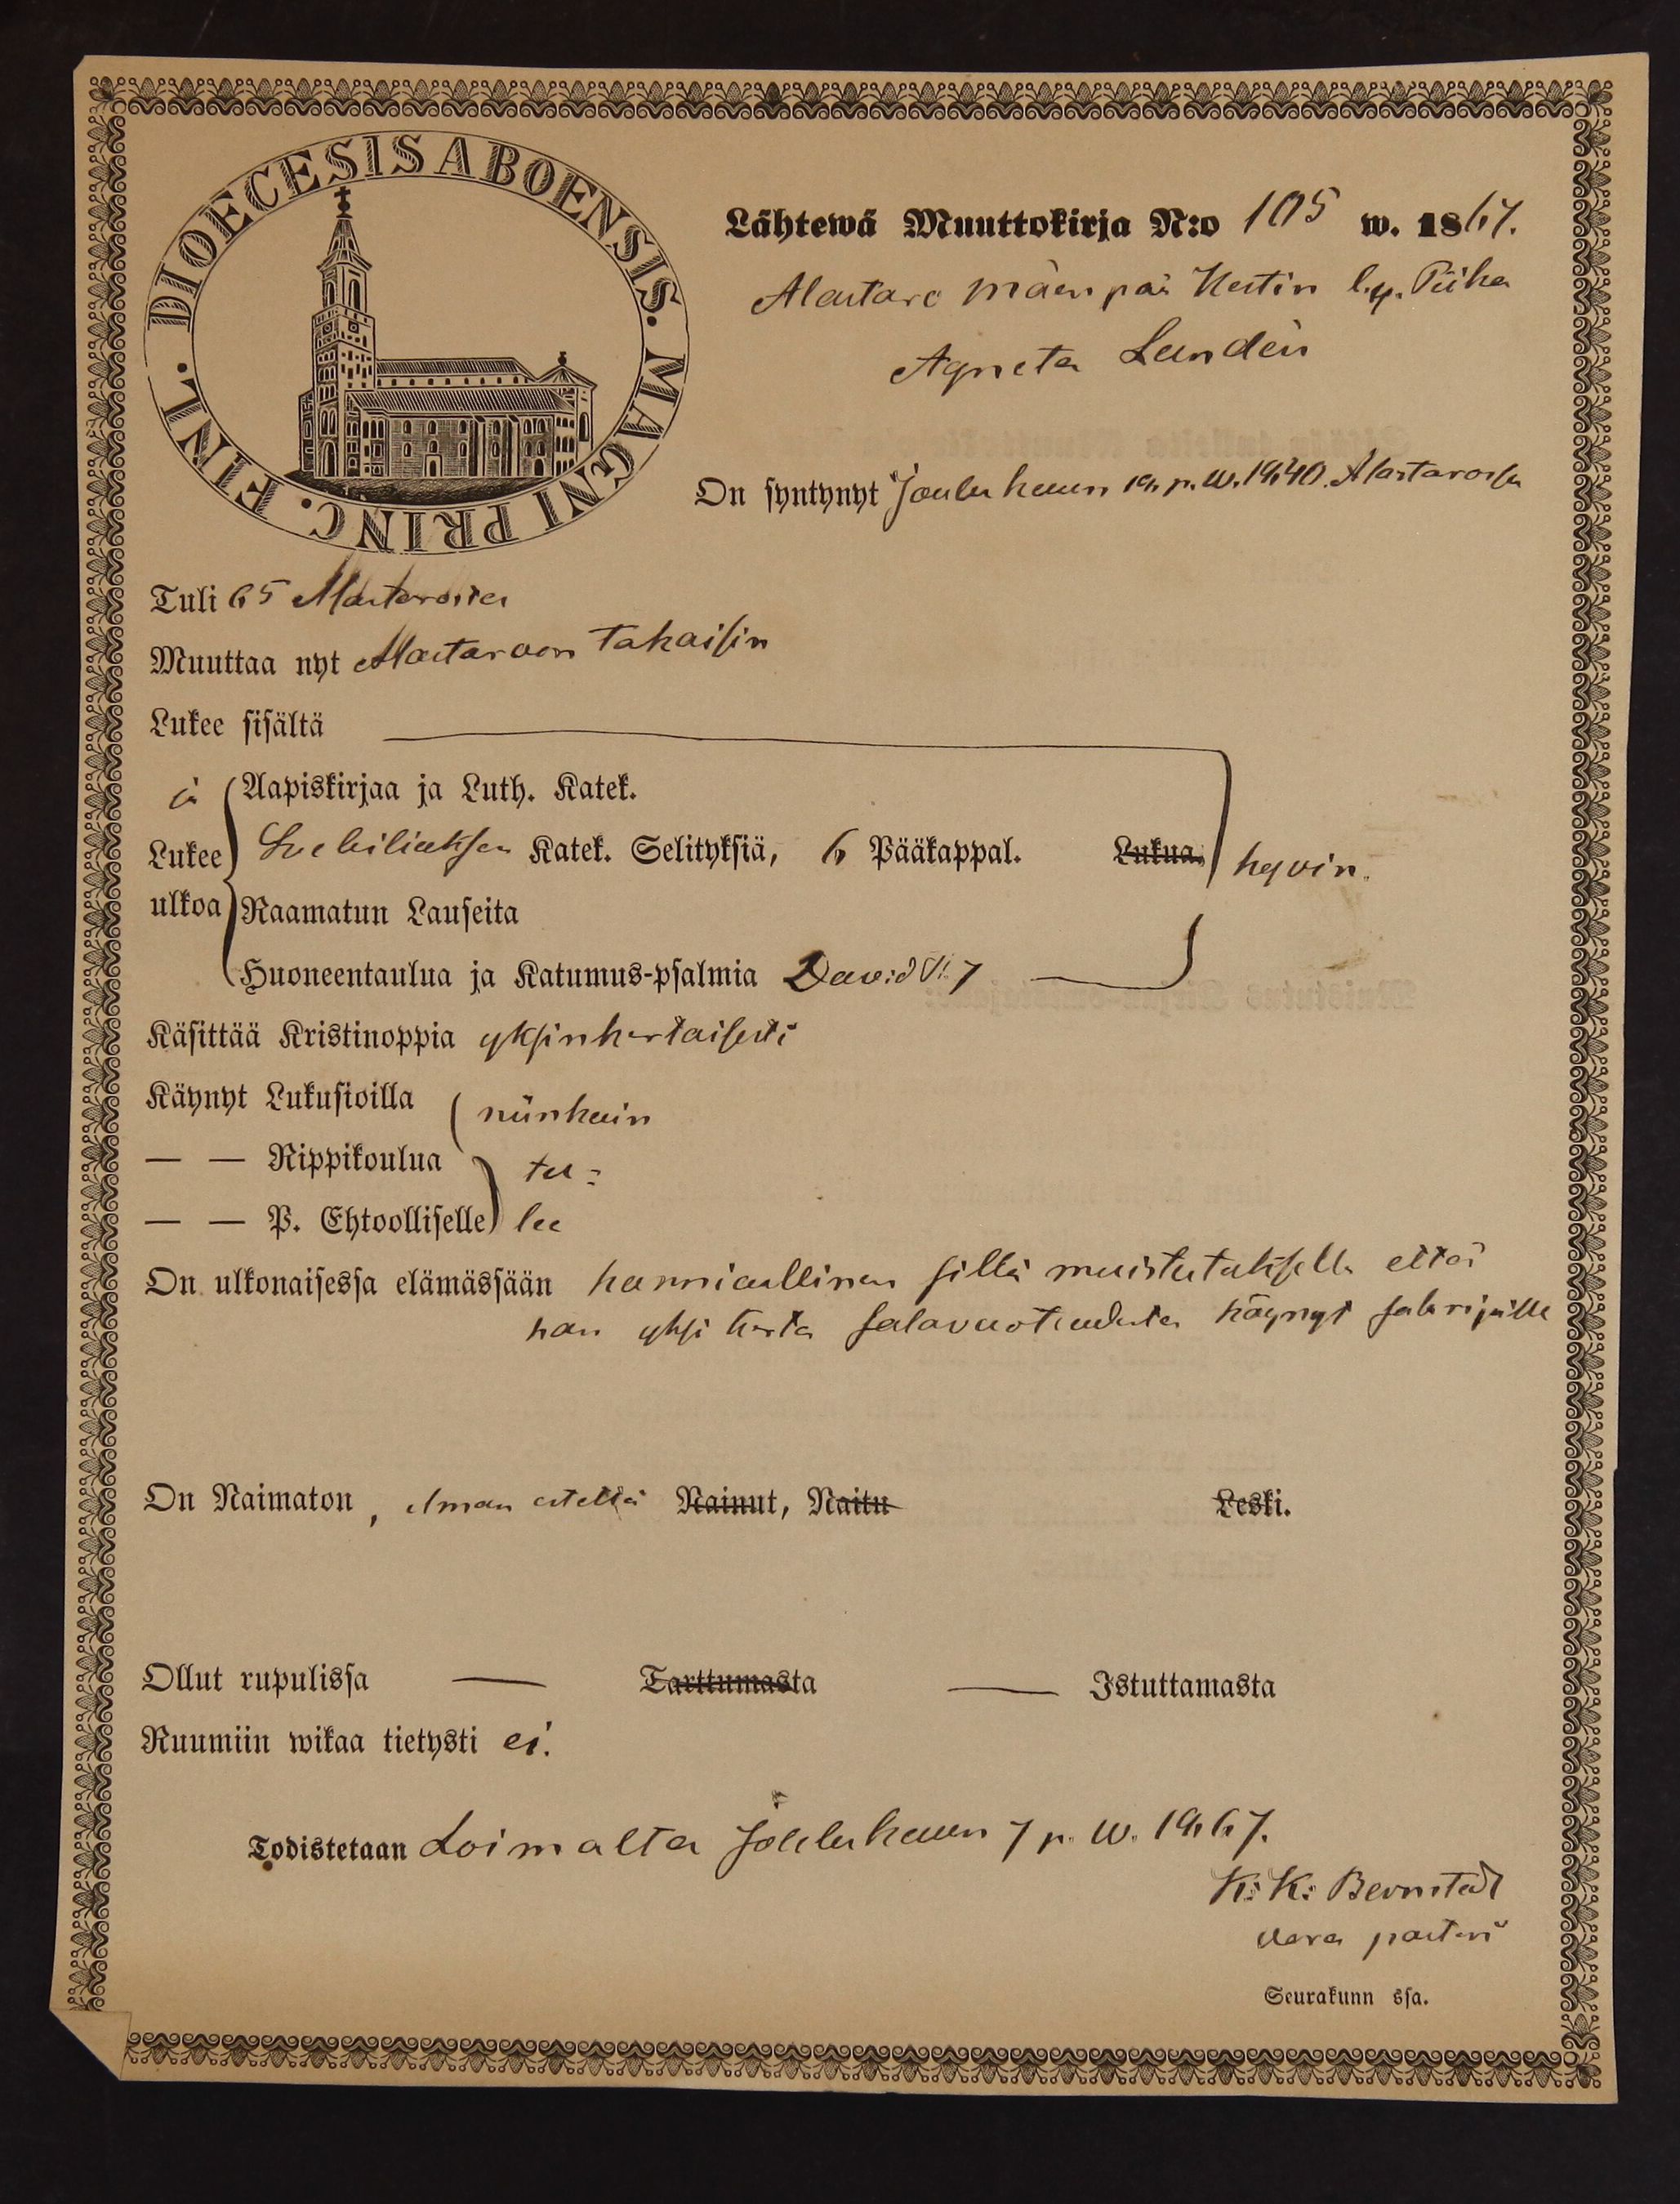 DIOECESIS ABOENSIS. MAGNI PRINC. FINL.
Lähtewä Muuttokirja N:o 105 w. 1867.
Alastaro Mäenpää Kestin l.y. Piika
Agneta Lundén
On syntynyt Joulukuun p. w. 1840. Alastarossa
Tuli 65 Alastarosta
Muuttaa nyt Alastaroon takaisin
Lukee sisältä
ja Aapiskirjaa ja Luth. Katek.
Lukee Svebiliuksen Katek. Selityksiä, 6 Pääkappal. Lukua. hyvin.
ulkoa Raamatun Lauseita
Huoneentaulua ja Katumus-psalmia David 7
Käsittää Kristinoppia yksinkertaisesti
Käynyt Lukusioilla niinkuin
— — Rippikoulua tu=
— — P. Ehtoolliselle lee
On ulkonaisessa elämässään kunniallinen sillä muistutuksella että
hän yksi kerta salavuoteudesta käynyt
On Naimaton, ilman estettä Nainut, Naitu Leski.
Ollut rupulissa — Tarttumasta — Istuttamasta
Ruumiin wikaa tietysti ei.
Todistetaan Loimalta Joulukuun 7 p. w. 1867.
K: K: Bernstedt
vara pastori
Seurakunn ssa.